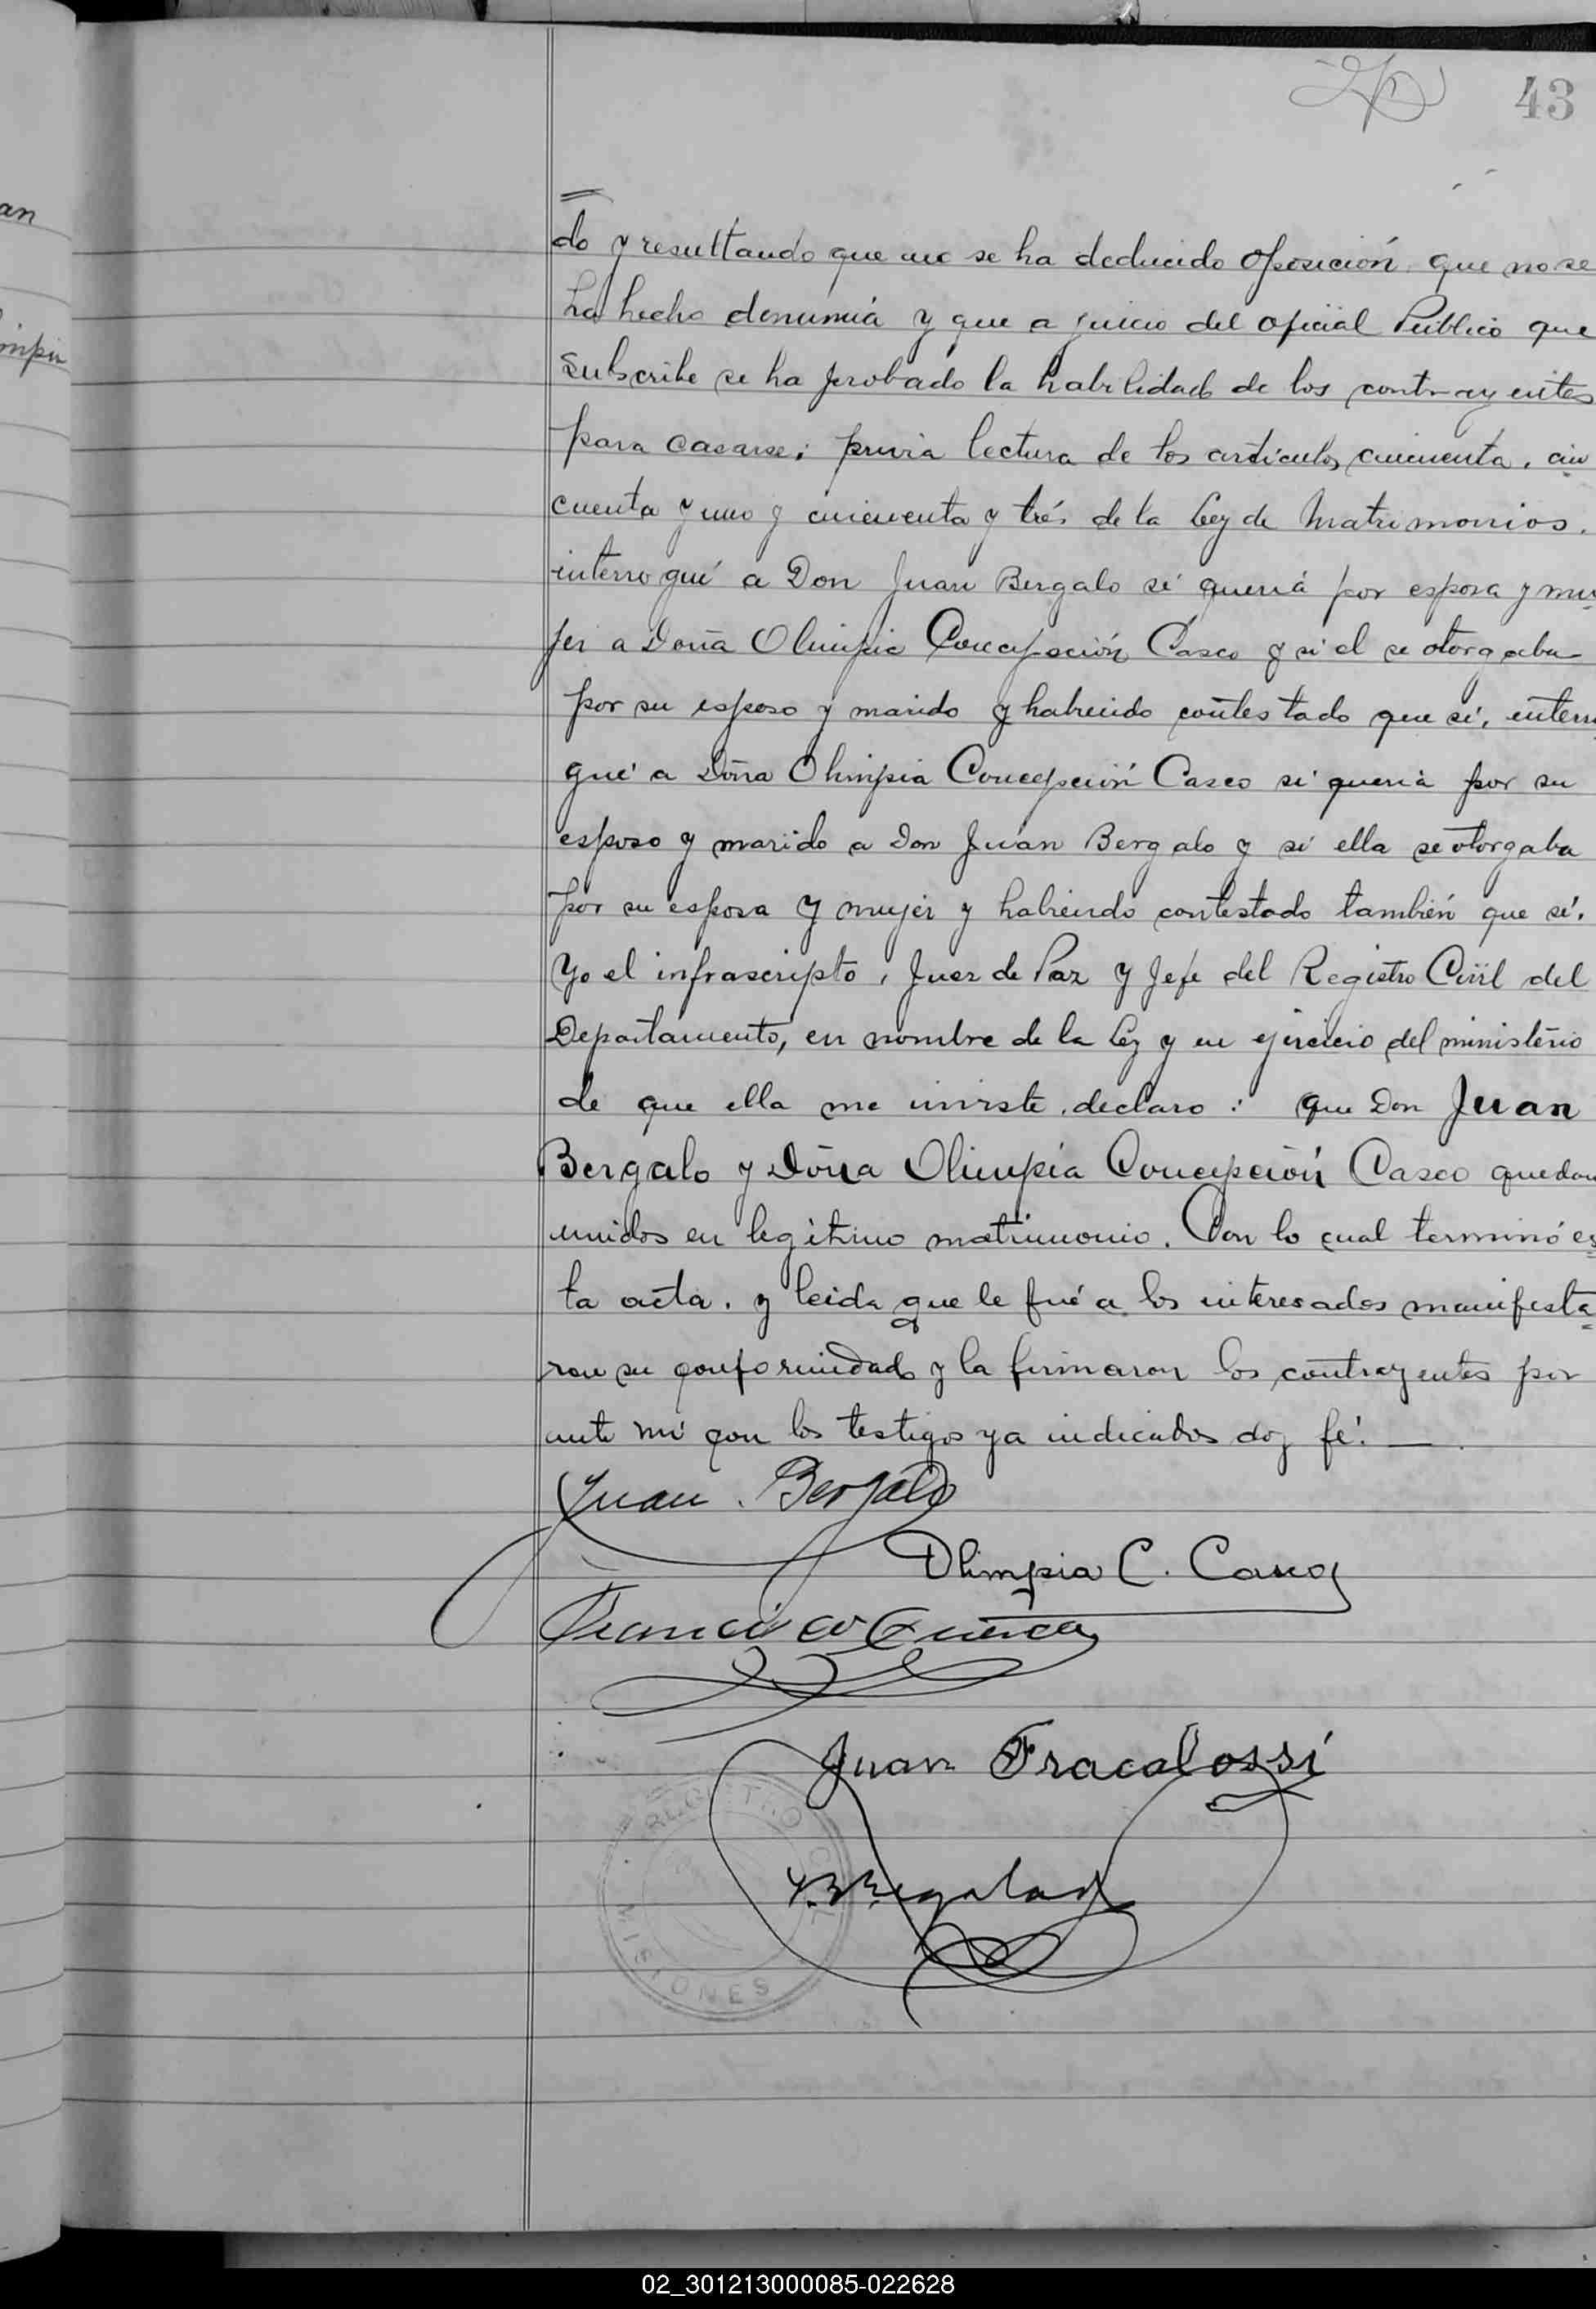 43
do y resultando que no se ha deducido oposición que no se
ha hecho denuncia y que a juicio del oficial Público que
subscribe se ha probado la habilidad de los contrayentes
para casarse; previa lectura de los artículos cincuenta, cin
cuenta y uno y cincuenta y trés de la Ley de Matrimonios.
interrogué a Don Juan Bergalo si quería por esposa y mu
jer a Doña Olimpia Concepción Casco y si el se otorgaba
por su esposo y marido y habiendo contestado que sí, interro
gué a Doña Olimpia Concepción Casco si quería por su
esposo y marido a Don Juan Bergalo y si ella se otorgaba
por su esposa y mujer y habiendo contestado también que sí.
Yo el infrascripto, Juez de Paz y Jefe del Registro Civil del
Departamento, en nombre de la Ley y en ejercicio del ministerio
de que ella me inviste, declaro: que Don Juan
Bergalo y Doña Olimpia Concepción Casco quedan
unidos en legítimo matrimonio. Con lo cual terminó es
ta acta. y leida que le fué a los interesados manifesta
ron su conformidad y la firmaron los contrayentes por
ante mí con los testigos ya indicados doy fé. —
Juan Bergalo
Olimpia C. Casco
Francisco
Juan Fracalossi
REGISTRO CIVIL
MISIONES
02_301213000085-022628